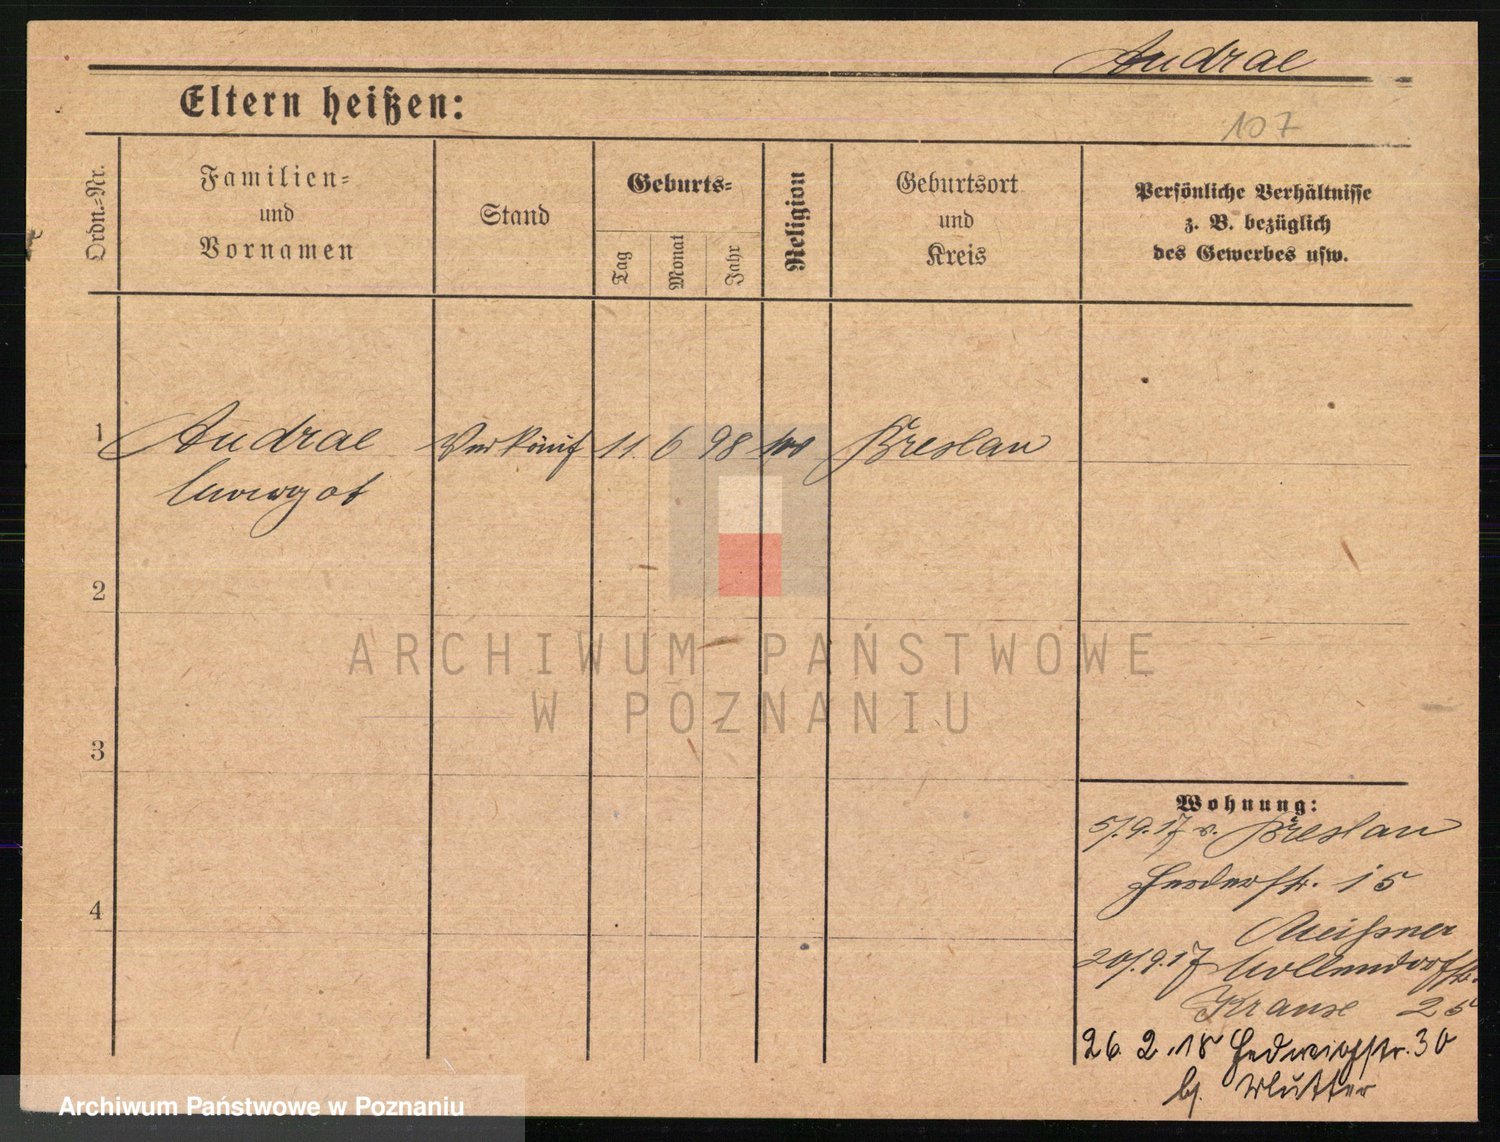 Andrae
Eltern heißen:
107
Ordn.-Nr.
Familien-
und
Vornamen
Stand
Geburts-
Tag
Monat
Jahr
Religion
Geburtsort
und
Kreis
Persönliche Verhältnisse
z. B. bezüglich
des Gewerbes usw.
1 Andrae Verkäuf 11. 6 98 Breslau
Margot
2
3
4
Wohnung:
5/.9.17 v. Breslau
Herderstr. 15
Meißner
20/.9.17 Nollendorfstr.
Krause 25
26. 2. 18 Hedwigstr. 30
bj. Mutter
ARCHIWUM PAŃSTWOWE
W POZNANIU
Archiwum Państwowe w Poznaniu